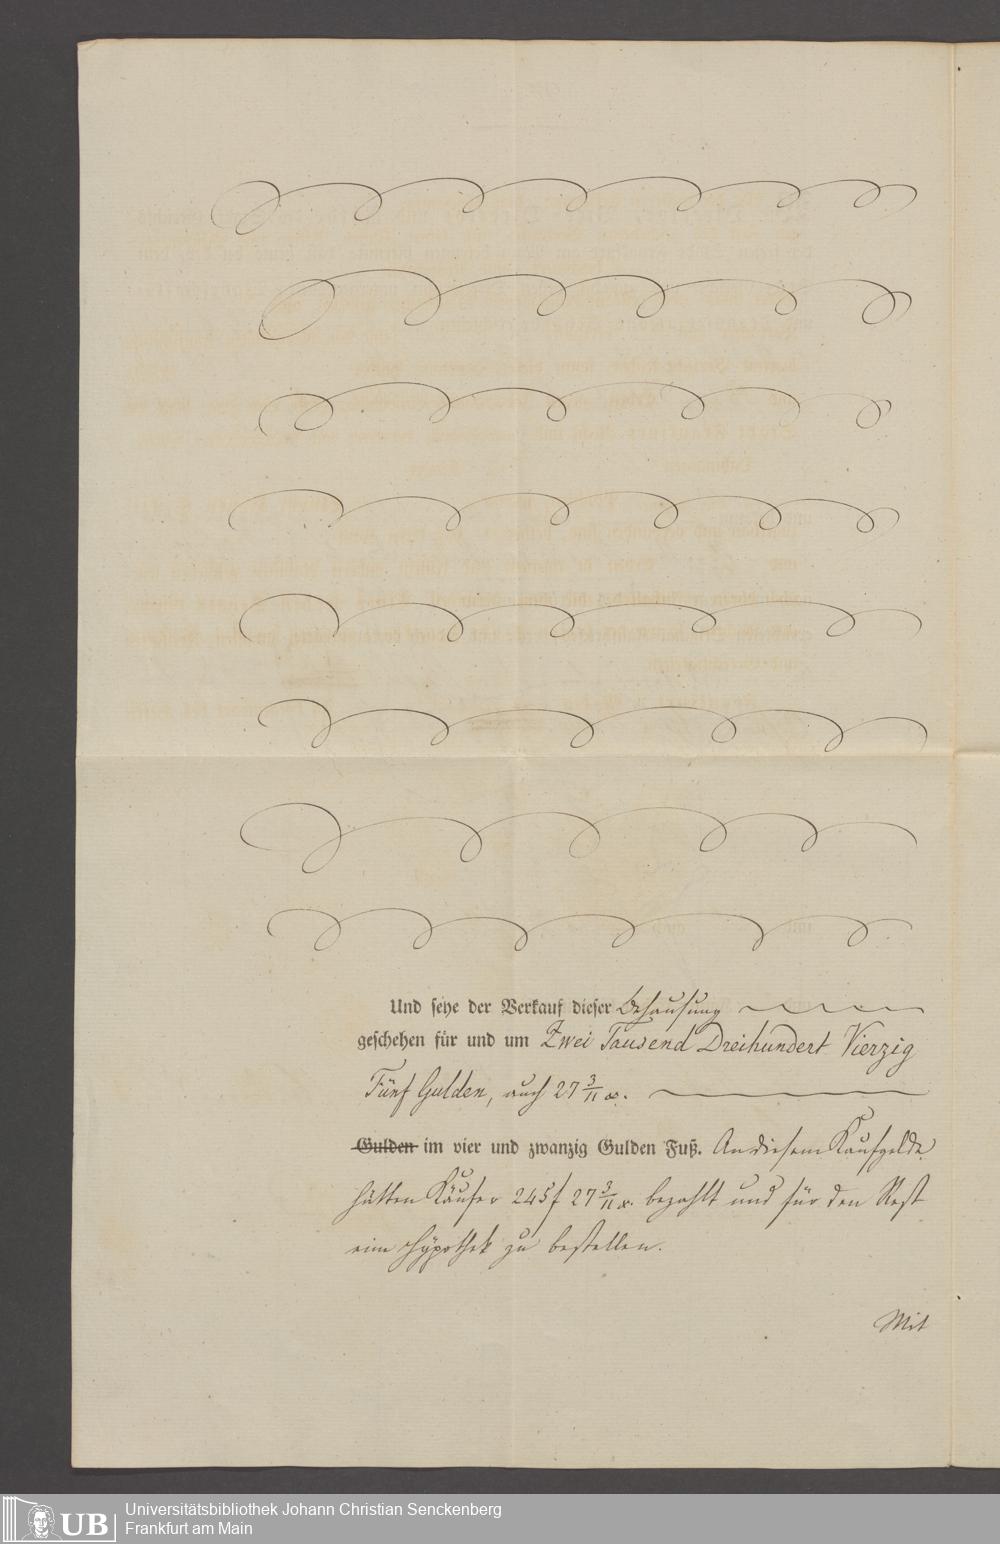 Und seye der Verkauf dieser Behausung
geschehen für und um Zwei Tausend Dreihundert Vierzig
Fünf Gulden, auch 27 3/11 x.
Gulden im vier und zwanzig Gulden Fuß. An diesem Kaufgelde
hätten Käufer 245 f 27 3/11 x. bezahlt und für den Rest
eine Hypothek zu bestellen.
Mit
UB
Universitätsbibliothek Johann Christian Senckenberg
Frankfurt am Main